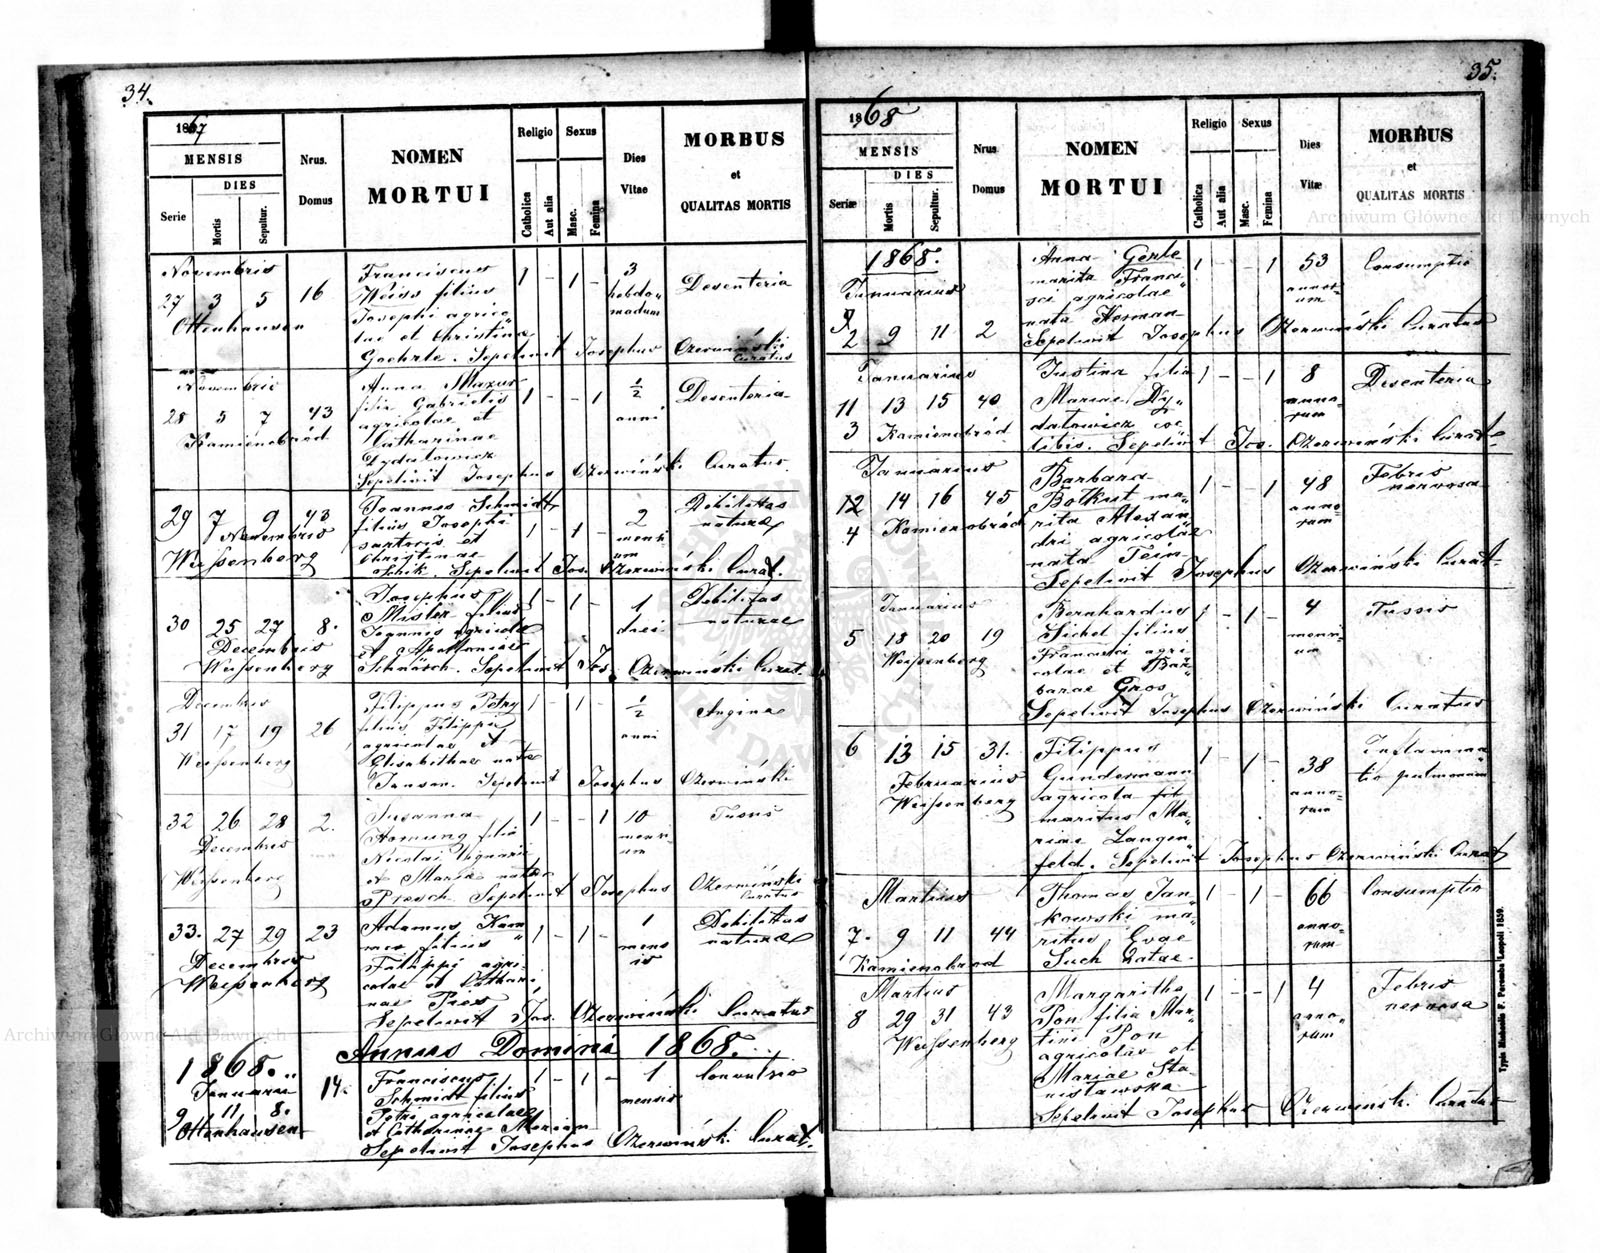 34.
1867
MENSIS
DIES
Serie
Mortis
Sepultur.
Nrus.
Domus
NOMEN
MORTUI
Religio
Catholica
Aut alia
Sexus
Masc.
Femina
Dies
Vitae
MORBUS
et
QUALITAS MORTIS
Novembris
27 3 5 16
Ottenhausen
Franciscus
Weiss filius
Josephi agrico
lae et Christinae
Goehrle. Sepelivit Josephus Ozerwiński
Curatus
1 - 1 -
3
hebdo
madum
Desenteria
Novembris
28 5 7 43
Kamienobród
Anna Mazur
filia Gabrielis
agricolae et
Catharinae
Dydalowicz
Sepelivit Josephus Ozerwiński Curatus.
1 - - 1
1/2
anni
Desenteria
29 7 9 43
Novembris
Weissenberg
Joannes Schmidt
filius Josephi
sartoris et
Chrystinae
Schik. Sepelivit Jos. Ozerwiński Curat.
1 - 1 -
2
mensi
um
Debilitas
naturae
30 25 27 8.
Decembris
Weissenberg
Josephus
Mister filius
Joannis agricolae
et Apolloniae
Schnärch. Sepelivit Jos. Ozerwiński Curat.
1 - 1 -
1
diei
Debilitas
naturae
Decembris
31 17 19 26
Weissenberg
Filippus Petry
filius Filippi
agricolae et
Elisabethae natae
Jansan. Sepelivit Josephus Ozerwiński
1 - 1 -
1/2
anni
Angina
32 26 28 2.
Decembris
Weissenberg
Susanna
Hornung filia
Nicolai
et Maria natae
Presch. Sepelivit Josephus Ozerwiński
Curatus
1 - - 1
10
mensi
um
Tusis
33. 27 29 23
Decembris
Weissenberg
Adamus Kam
mer filius
Filippi agri
colae et Cathari
nae Pier
Sepelivit Jos. Ozerwiński Curatus
1 - 1 -
1
mens
is
Debilitas
naturae
Annus Domini 1868.
1868.
Januarii
9 11 8.
14.
Ottenhausen
Franciscus
Schmidt filius
Petri agricolae
et Catharinae Merian
Sepelivit Josephus Ozerwiński Curat.
1 - 1 -
1
mensis
Convulsio
35.
1868
MENSIS
DIES
Seriæ
Mortis
Sepultur.
Nrus.
Domus
NOMEN
MORTUI
Religio
Catholica
Aut alia
Sexus
Masc.
Femina
Dies
Vitæ
MORBUS
et
QUALITAS MORTIS
1868.
Januarius
2 9 11 2
Anna Gerle
marita Franci
sci agricolae
nata Herman
Sepelivit Josephus Ozerwiński Curatus
1 - - 1
53
annor
um
Consumptio
Januarius
11 13 15 40
3 Kamienobród
Justina filia
Mariae Dy
datowicz coe
libis. Sepelivit Jos. Ozerwiński Curatus
1 - - 1
8
anno
rum
Desenteria
Januarius
12 14 16 45
4 Kamienobród
Barbara
Botkut ma
rita Alexan
dri agricolae
nata Tein
Sepelivit Josephus Ozerwiński Curat.
1 - - 1
48
anno
rum
Febris
nervosa
Januarius
5 18 20 19
Weissenberg
Bernhardus
Sichel filius
Francisci agri
colae et Bar
barae Gros
Sepelivit Josephus Ozerwiński Curatus
1 - 1 -
4
mensi
um
Tussis
6 13 15 31.
Februarius
Weissenberg
Filippus
Gundermann
agricola
maritus Ma
riae Langen
feld. Sepelivit Josephus Ozerwiński Curat
1 - 1 -
38
anno
rum
Inflamma
tio pulmonum
Martius
7. 9 11 44
Kamienobrod
Thomas Jan
kowski ma
ritus Evae
Such natae.
1 - 1 -
66
anno
rum
Consumptio
Martius
8 29 31 43
Weissenberg
Margaritha
Pon filia Mar
tini Pon
agricolae et
Mariae Sta
nislawska
Sepelivit Josephus Ozerwiński Curatus
1 - - 1
4
anno
rum
Febris
nervosa
Typis Michaelis F. Poremba Leopoli 1859.
Archiwum Główne Akt Dawnych
Archiwum Główne Akt Dawnych